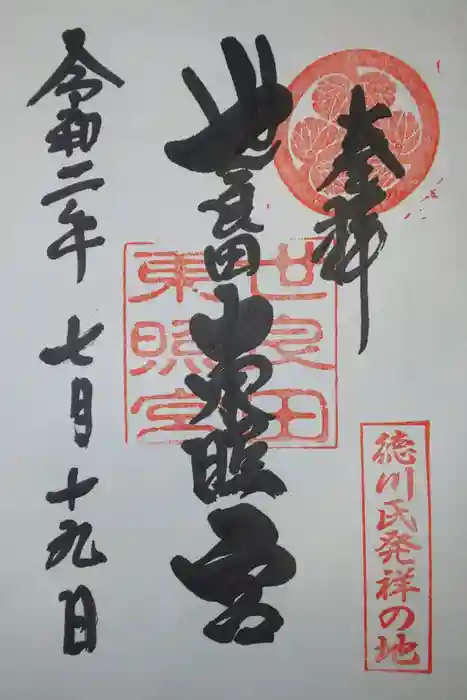 奉拝
徳川氏発祥の地
世良田東照宮
世良田
東照宮
令和二年七月十九日